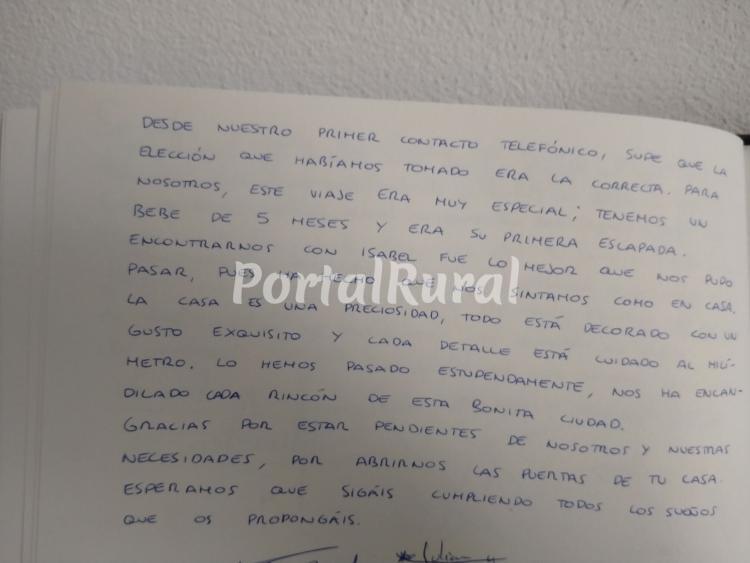 DESDE NUESTRO PRIMER CONTACTO TELEFÓNICO, SUPE QUE LA
ELECCIÓN QUE HABÍAMOS TOMADO ERA LA CORRECTA. PARA
NOSOTROS, ESTE VIAJE ERA MUY ESPECIAL; TENEMOS UN
BEBE DE 5 MESES Y ERA SU PRIMERA ESCAPADA.
ENCONTRARNOS CON ISABEL FUE LO MEJOR QUE NOS PUDO
PASAR, PUES HA HECHO QUE NOS SINTAMOS COMO EN CASA.
PortalRural
LA CASA ES UNA PRECIOSIDAD, TODO ESTÁ DECORADO CON UN
GUSTO EXQUISITO Y CADA DETALLE ESTÁ CUIDADO AL MILÍ-
METRO. LO HEMOS PASADO ESTUPENDAMENTE, NOS HA ENCAN-
DILADO CADA RINCÓN DE ESTA BONITA CIUDAD.
GRACIAS POR ESTAR PENDIENTES DE NOSOTROS Y NUESTRAS
NECESIDADES, POR ABRIRNOS LAS PUERTAS DE TU CASA.
ESPERAMOS QUE SIGÁIS CUMPLIENDO TODOS LOS SUEÑOS
QUE OS PROPONGÁIS.